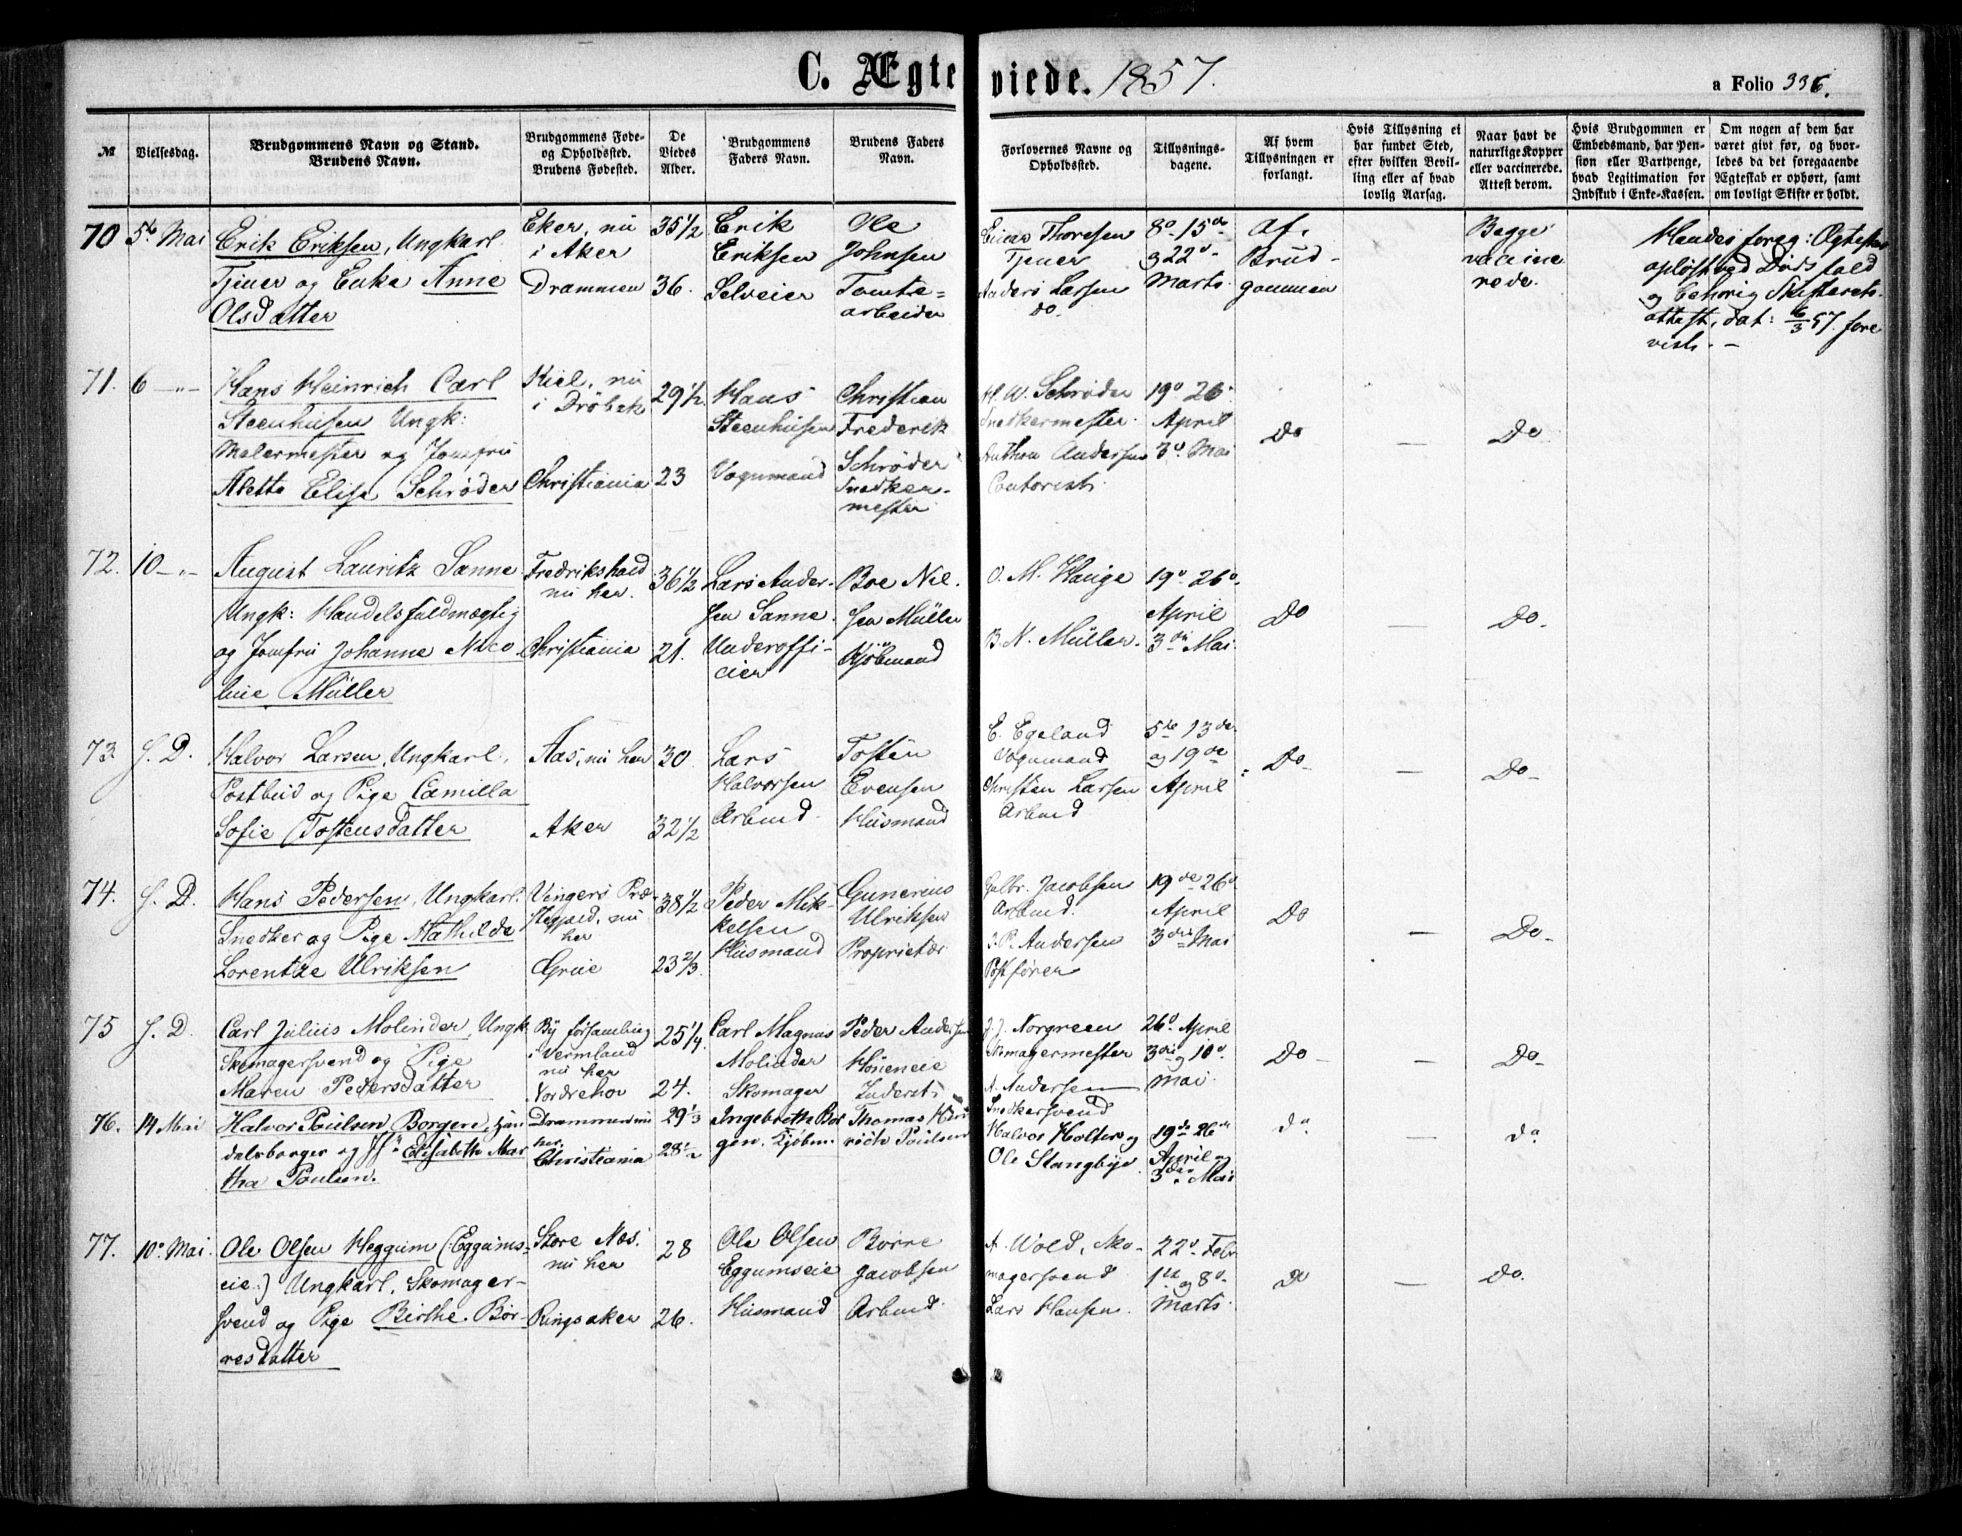 C. Ægteviede. 1857.
a Folio 336.
№
Vielsesdag.
Brudgommens Navn og Stand.
Brudens Navn.
Brudgommens Føde-
og Opholdssted.
Brudens Fødested.
De
Viedes
Alder.
Brudgommens
Faders Navn.
Brudens Faders
Navn.
Forlovernes Navne og
Opholdssted.
Tillysnings-
dagene.
Af hvem
Tillysningen er
forlangt.
Hvis Tillysning ei
har fundet Sted,
efter hvilken Bevil-
ling eller af hvad
lovlig Aarsag.
Naar havt de
naturlige Kopper
eller vaccinerede.
Attest derom.
Hvis Brudgommen er
Embedsmand, har Pen-
sion eller Vartpenge,
hvad Legitimation for
Indskud i Enke-Kassen.
Om nogen af dem har
været givt før, og hvor-
ledes da det foregaaende
Ægteskab er ophørt, samt
om lovligt Skifte er holdt.
70
5te Mai
Erik Eriksen, Ungkarl
Tjener og Enke Anne
Olsdatter
Eker, nu
i Aker
Drammen
35 1/2
36.
Erik
Eriksen
Selveier
Ole
Johnsen
Tomte=
arbeider
Einar Thoresen
Tjener
Anders Larsen
do.
8de 15de
& 22de
Marts.
Af
Brud-
gommen
Begge
vaccine
rede.
Hendes foreg: Ægtesk.
opløst ved Dødsfald
og behørig Skifterets-
attest, dat: 6/3 57 fore
vist. -
71.
6 -"-
Hans Heinrich Carl
Steenhusen Ungk:
Malermester og Jomfru
Alette Elise Schrøder
Kiel, nu
i Drøbak
Christiania
29 1/2
23
Hans
Steenhusen
Vognmand
Christian
Frederik
Schrøder
Snedker-
mester
H. W. Schrøder
Snedkermester
Anthon Andersen
Contorist.
19de 26de
April
3de Mai
Do
—
Do
72.
10 -"-
August Lauritz Sanne
Ungk: Handelsfuldmægtig
og Jomfru Johanne Nico-
line Müller
Fredrikshald
nu her.
Christiania
36 1/2
21.
Lars Ander-
sen Sanne.
Underoffi-
cier
Boe Niel-
sen Müller
Kjøbmand
O. M. Hauge
B. N. Müller.
19de 26de
April
3die Mai.
Do
—
Do-
73.
S. D.
Halvor Larsen, Ungkarl,
Postbud og Pige Camilla
Sofie Tostensdatter
Aas, nu her
Aker
30
32 1/2
Lars
Halvorsen
Arbmd.
Tosten
Evensen
Husmand
E. Egeland
Vognmand
Christen Larsen
Arbmd
5te 13de
og 19de
April
Do
—
Do-
74.
S. D.
Hans Pedersen, Ungkarl
Snedker og Pige Mathilde
Lorentze Ulriksen
Vingers Præ-
stegjæld, nu
her
Grue
38 1/2
23 2/3.
Peder Mik-
kelsen
Husmand
Gunerius
Ulriksen
Proprietær
Gulbr. Jacobsen
Arbmd.
J. P. Andersen
Postfører
19de 26de
April
3die Mai
Do
—
Do-
75
S. D.
Carl Julius Molinder, Ungk.
Skomagersvend og Pige
Maren Pedersdatter
By forsamling
i Vermland
nu her
Norderhov
25 1/4.
24.
Carl Magnus
Molinder
Skomager
Peder Andersen
Høneneie
Inderst
J. J. Norgreen
Skomagermester
A. Andersen
Snedkersvend
26de April
3die og 10de
Mai.
Do
—
Do-
76.
14 Mai
Halvor Poulsen Borgen, Han
delsborger og Jfr Elisabeth Mar
tha Poulsen.
Drammen nu
her.
Christiania
29 1/3
28 1/2
Ingebreth Bor
gen. Kjøbm.
Thomas Hen
rich Poulsen
Halvor Holter og
Ole Stangbye
19de 26de
April og
3die Mai
do
—
do
77.
10de Mai
Ole Olsen Heggum (Eggums-
eie) Ungkarl, Skomager-
svend og Pige Birthe Bør-
resdatter
Store Næs.
nu her
Ringsaker
28
26.
Ole Olsen
Eggumseie
Husmand
Børre
Jacobsen
Arbmd.
A. Wold, Sko-
magersvend
Lars Hansen.
22de Febr
1ste og 8de
Marts.
Do
—
Do.